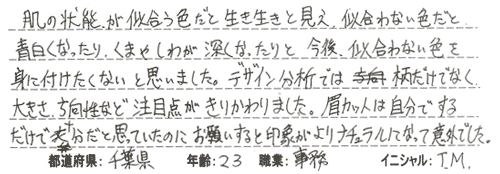 肌の状態が似合う色だと生き生きと見え、似合わない色だと
青白くなったり、くまやしわが深くなったりと今後、似合わない色を
身に付けたくないと思いました。デザイン分析では柄だけでなく、
大きさ、方向性など注目点がきりかわりました。眉カットは自分でする
だけで充分だと思っていたのにお願いすると印象がよりナチュラルになって意外でした。
都道府県:千葉県 年齢:23 職業:事務 イニシャル:T.M.